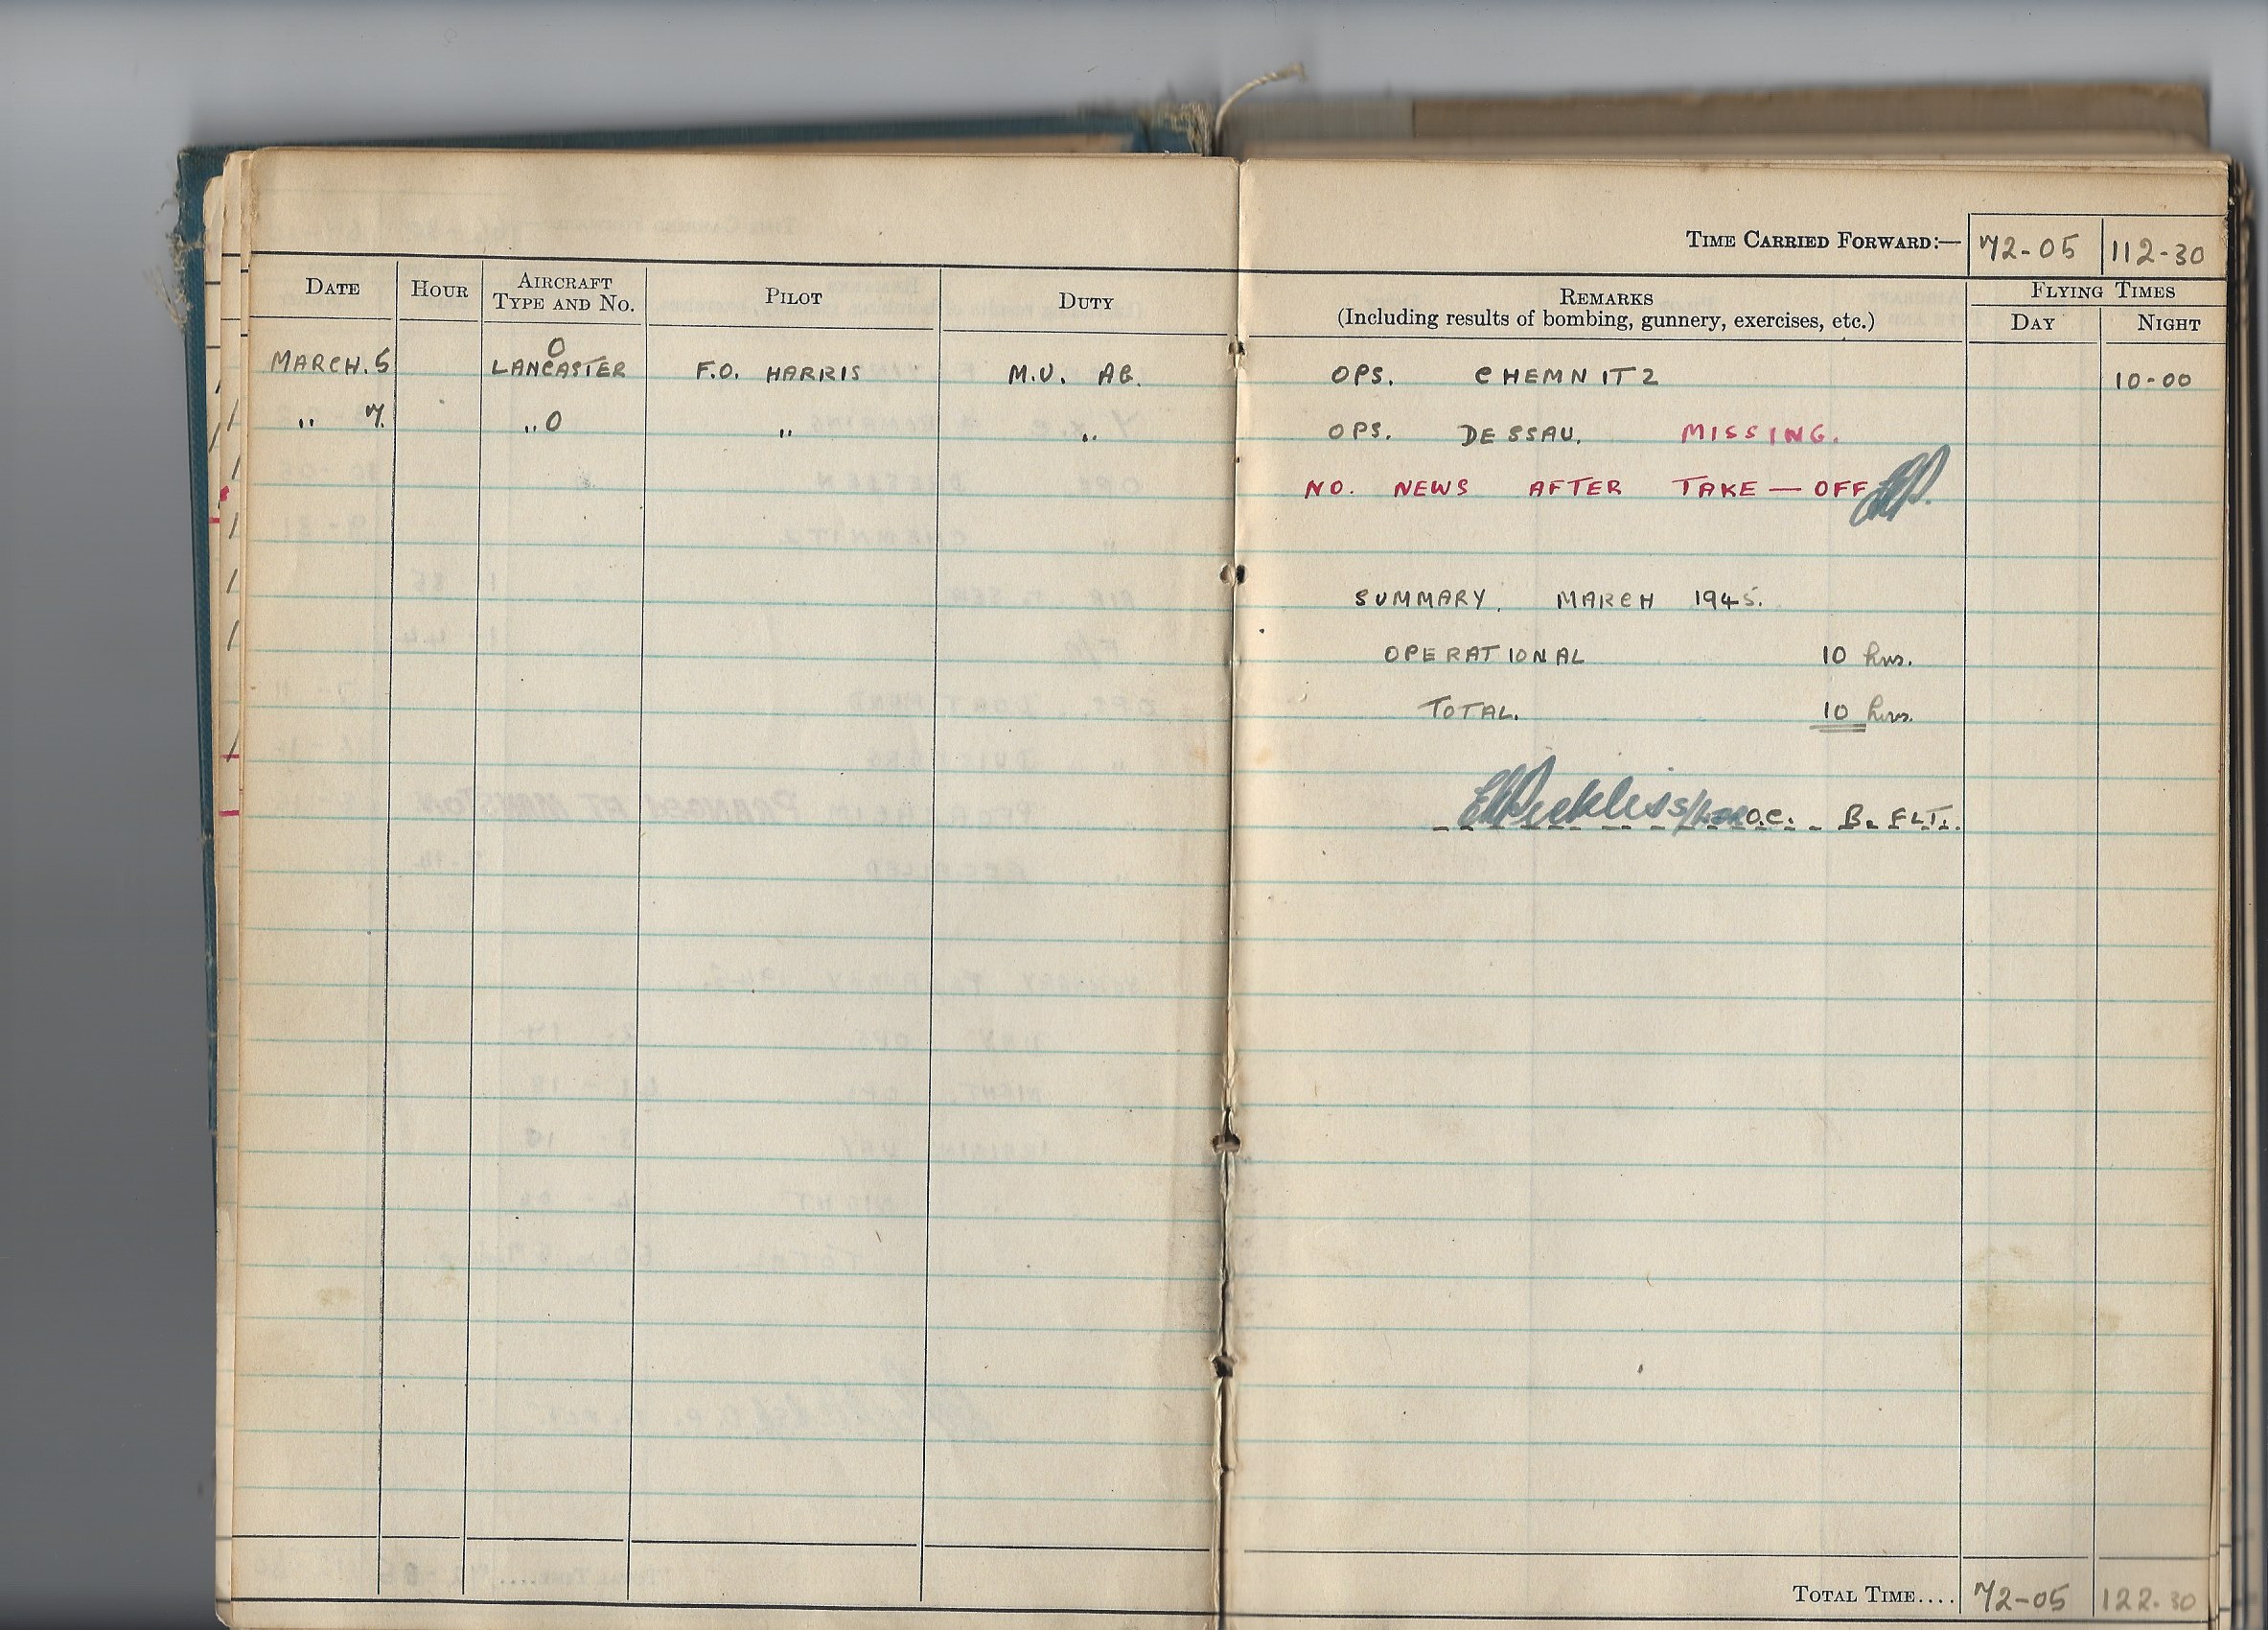 TIME CARRIED FORWARD:— 72-05 112-30
DATE HOUR AIRCRAFT TYPE AND No. PILOT DUTY REMARKS (Including results of bombing, gunnery, exercises, etc.) FLYING TIMES DAY NIGHT
MARCH. 5 O LANCASTER F.O. HARRIS M.U. AG. OPS. CHEMNITZ 10-00
" 7. " O " " OPS. DESSAU. MISSING.
NO. NEWS AFTER TAKE — OFF
SUMMARY. MARCH 1945.
OPERATIONAL 10 hrs.
TOTAL. 10 hrs.
O.C. B. FLT.
TOTAL TIME.... 72-05 122.30